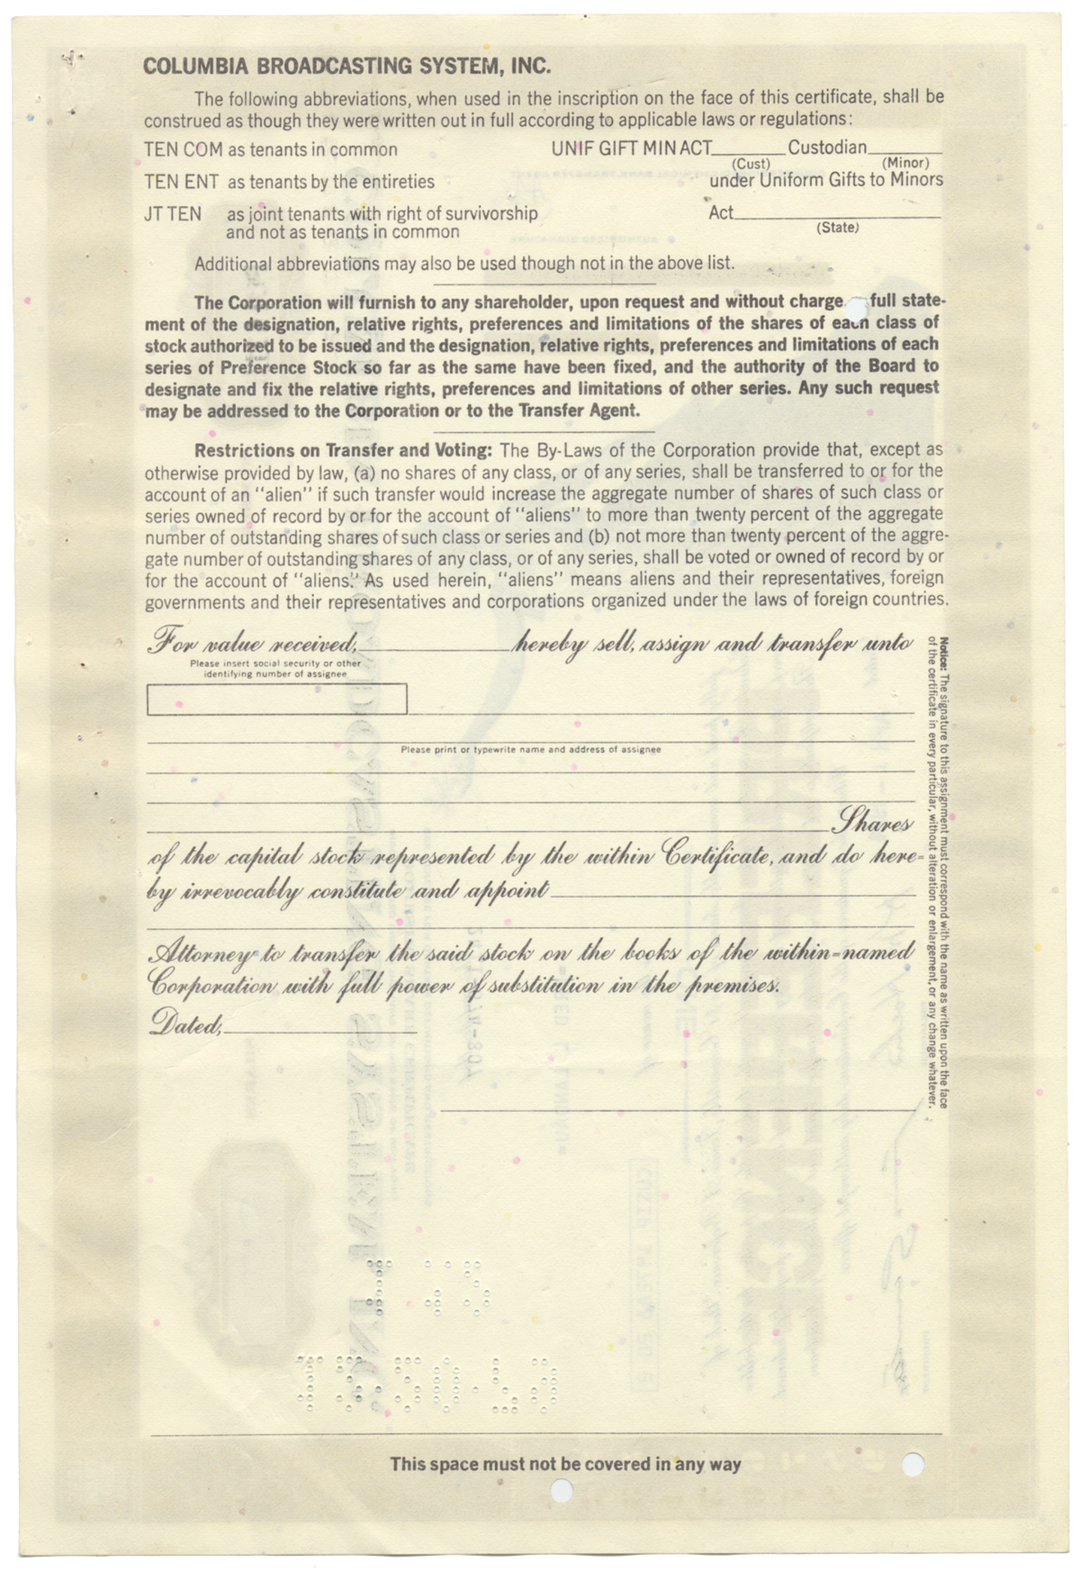 COLUMBIA BROADCASTING SYSTEM, INC.
The following abbreviations, when used in the inscription on the face of this certificate, shall be
construed as though they were written out in full according to applicable laws or regulations:
TEN COM as tenants in common
UNIF GIFT MIN ACT______ Custodian______
(Cust) (Minor)
TEN ENT as tenants by the entireties
under Uniform Gifts to Minors
JT TEN as joint tenants with right of survivorship
and not as tenants in common
Act______
(State)
Additional abbreviations may also be used though not in the above list.
The Corporation will furnish to any shareholder, upon request and without charge full state-
ment of the designation, relative rights, preferences and limitations of the shares of each class of
stock authorized to be issued and the designation, relative rights, preferences and limitations of each
series of Preference Stock so far as the same have been fixed, and the authority of the Board to
designate and fix the relative rights, preferences and limitations of other series. Any such request
may be addressed to the Corporation or to the Transfer Agent.
Restrictions on Transfer and Voting: The By-Laws of the Corporation provide that, except as
otherwise provided by law, (a) no shares of any class, or of any series, shall be transferred to or for the
account of an "alien" if such transfer would increase the aggregate number of shares of such class or
series owned of record by or for the account of "aliens" to more than twenty percent of the aggregate
number of outstanding shares of such class or series and (b) not more than twenty percent of the aggre-
gate number of outstanding shares of any class, or of any series, shall be voted or owned of record by or
for the account of "aliens." As used herein, "aliens" means aliens and their representatives, foreign
governments and their representatives and corporations organized under the laws of foreign countries.
For value received,______hereby sell, assign and transfer unto
Please insert social security or other
identifying number of assignee
Please print or typewrite name and address of assignee
Shares
of the capital stock represented by the within Certificate, and do here=
by irrevocably constitute and appoint______
Attorney to transfer the said stock on the books of the within=named
Corporation with full power of substitution in the premises.
Dated,______
Notice: The signature to this assignment must correspond with the name as written upon the face
of the certificate in every particular, without alteration or enlargement, or any change whatever.
This space must not be covered in any way